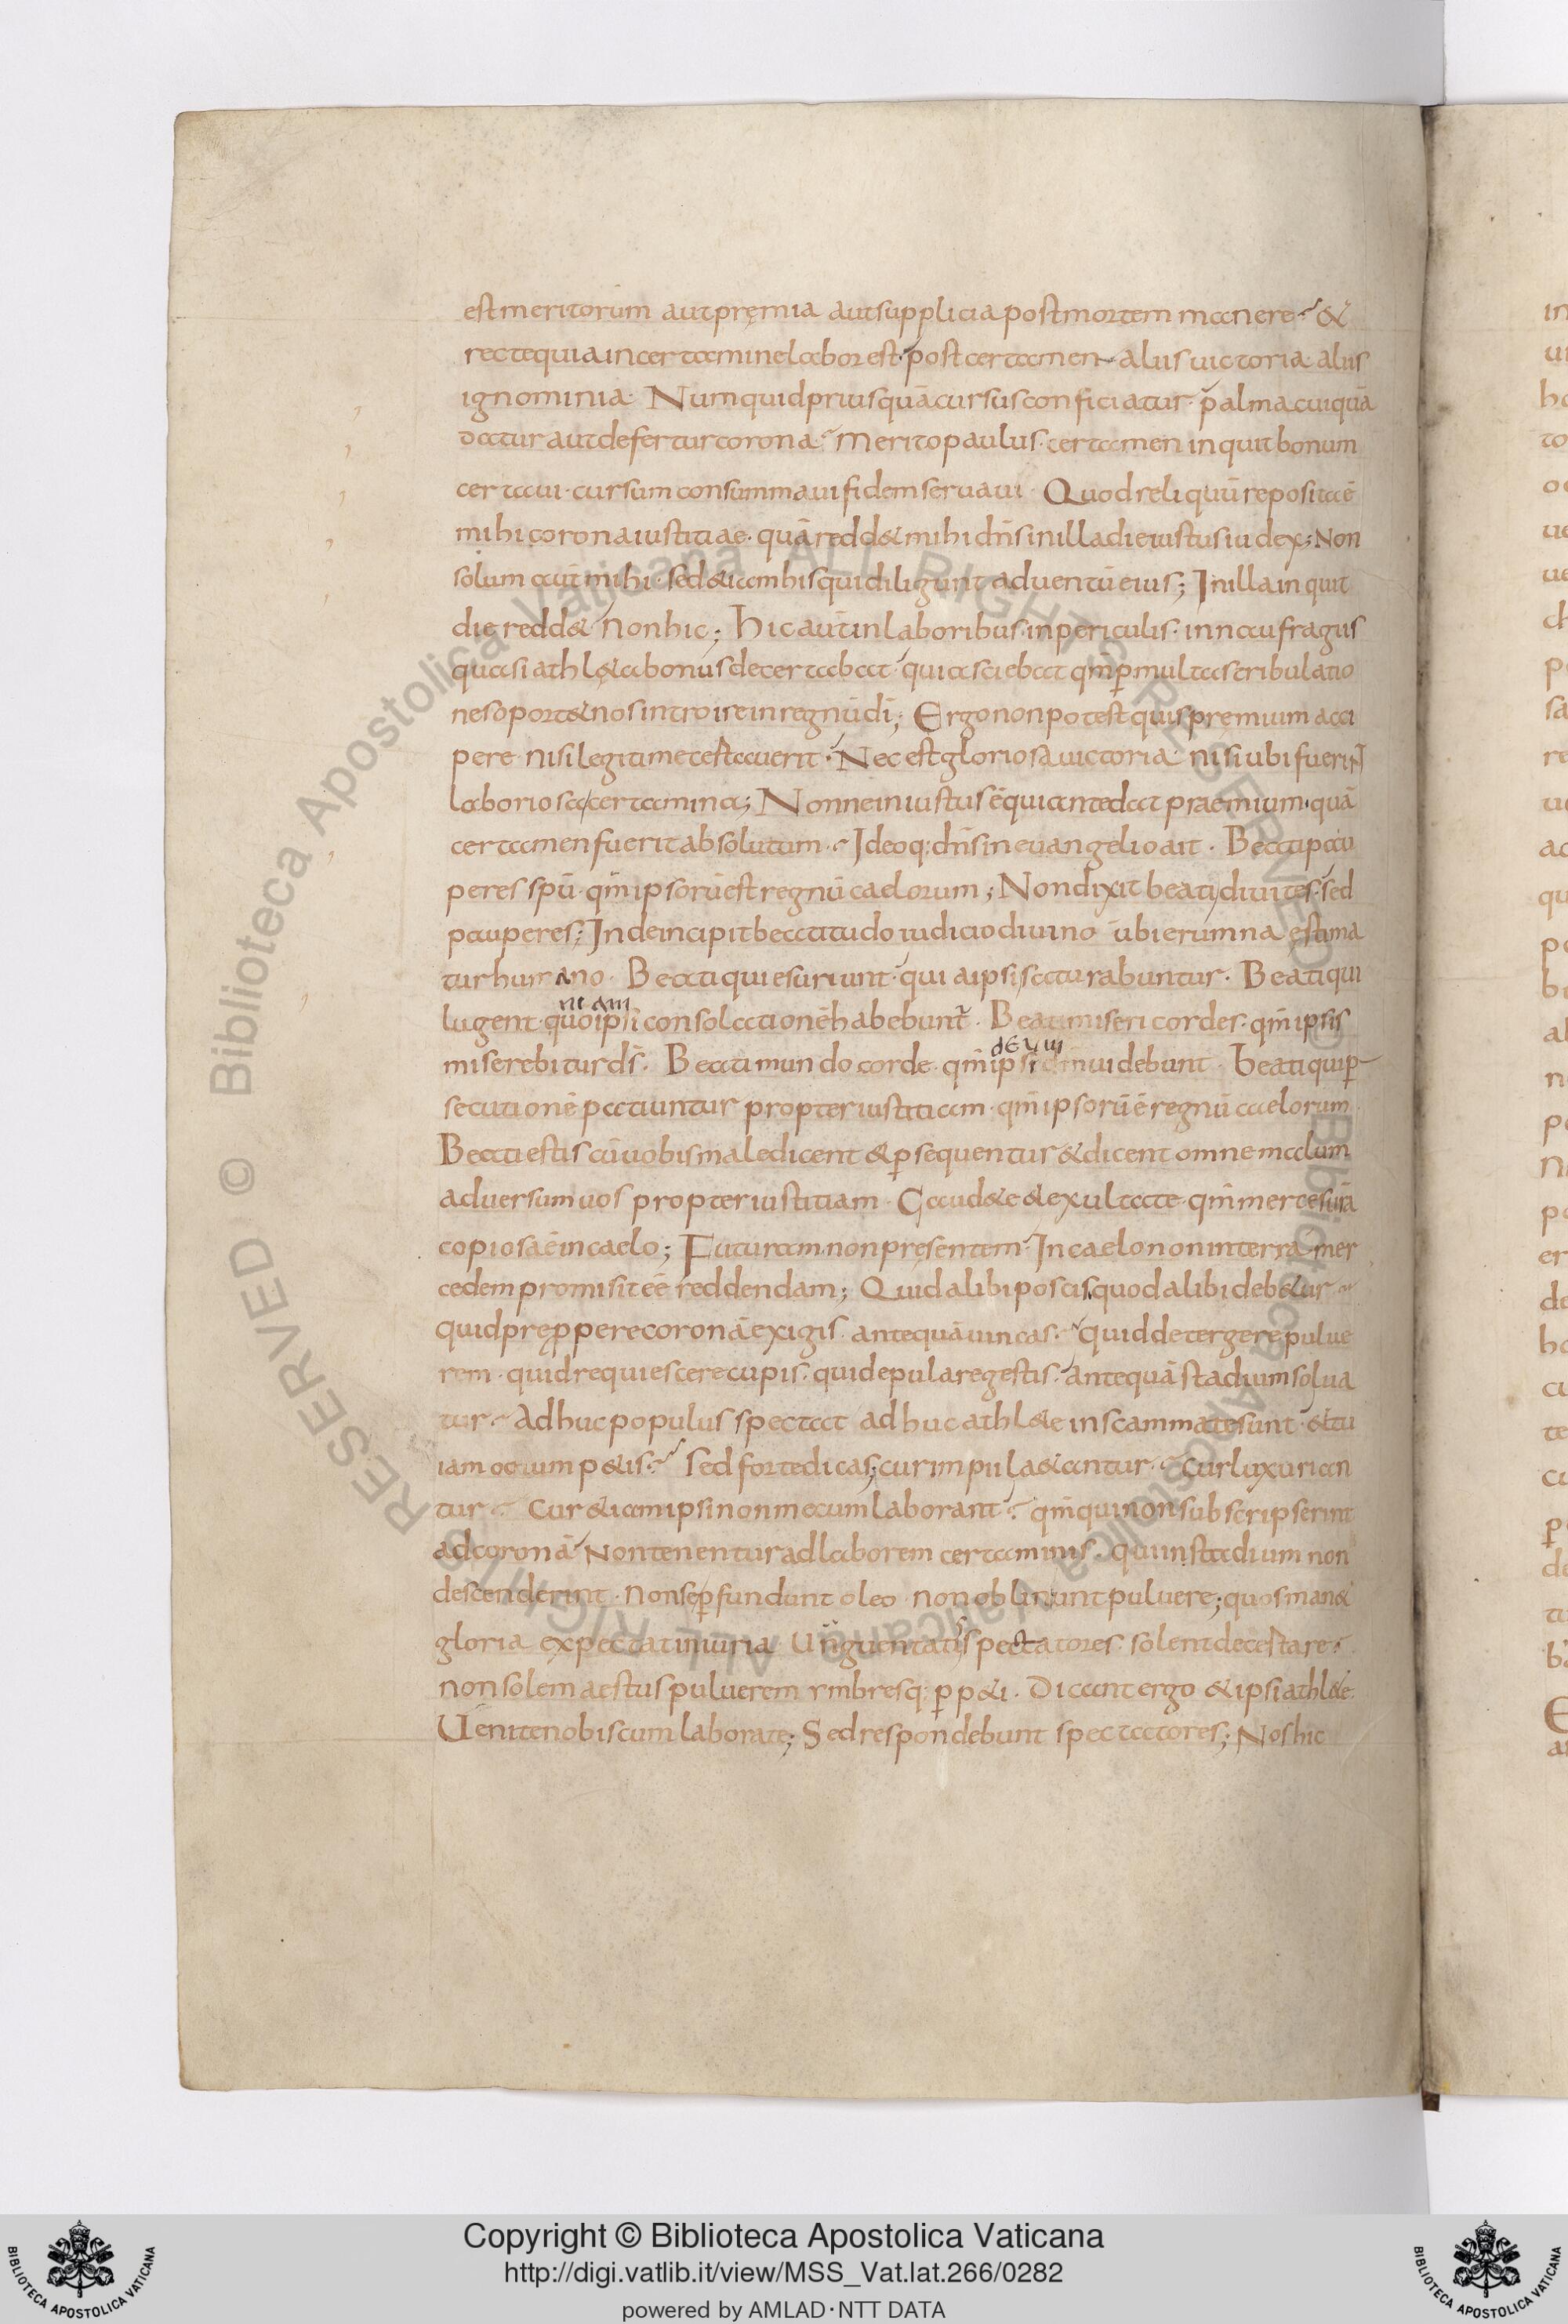 est meritorum aut pręmia aut supplicia post mortem manere? &
recte quia in certamine labor est · post certamen aliis uictoria aliis
ignominia · Numquid prius quā cursus conficiatur · palma cuiquā
datur aut defertur corona? Merito paulus · certamen inquit bonum
certaui · cursum consummaui fidem seruaui · Quod reliquū reposita ē
mihi corona iustitiae · quā redd& mihi dn̄s in illa die iustus iudex; Non
solum aut̄ mihi · sed & iam his qui diligunt aduentū eius; In illa inquit
die redd& non hic; Hic aut̄ in laboribus · in periculis · in naufragiis
quasi athl&a bonus decertabat · quia sciebat qm̄ p̄ multas tribulatio
nes oport& nos introire in regnū dī; Ergo non potest quis pręmium acci
pere nisi legitime certauerit · Nec est gloriosa uictoria nisi ubi fuerint
laboriosa certamina; Nonne iniustus ē qui ante dat praemium · quā
certamen fuerit absolutum? Ideoq; dn̄s in euangelio ait · Beati pau
peres spū · qm̄ ipsorū est regnū caelorum; Non dixit beati diuites · sed
pauperes; Inde incipit beatitudo iudicio diuino ubi erumna estima
tur humano · Beati qui esuriunt · quia ipsi saturabuntur · Beati qui
lugent · quo ipsi consolationē habebunt · Beati misericordes · qm̄ ipsis
miserebitur ds̄ · Beati mundo corde · qm̄ ipsi dm̄ uidebunt · beati qui p̄
secutionē patiuntur propter iustitiam · qm̄ ipsorū ē regnū caelorum ·
Beati estis cū uobis maledicent & p̄sequentur & dicent omne malum
aduersum uos propter iustitiam · Gaud&e & exultate · qm̄ merces urā
copiosa ē in caelo; Futuram · non pręsentem · In caelo non in terra mer
cedem promisit eē reddendam; Quid alibi poscis quod alibi deb&ur?
quid prępp̄ere coronā exigis · antequā uincas? quid detergere pulue
rem · quid requiescere cupis · quid epulare gestis · antequā stadium solua
tur? Adhuc populus spectat adhuc athl&e in scammate sunt · & tu
iam otium p&is? Sed forte dicas; cur impii la&antur? cur luxurian
tur? Cur & iam ipsi non mecum laborant? qm̄ qui non subscripserint
ad coronā Non tenentur ad laborem certaminis · qui in stadium non
descenderint · Non se p̄fundunt oleo non oblinunt puluere; quos man&
gloria expectat iniuria Unguentatis spectatores solent decestare ·
non solem aestus puluerem ymbresq; p̄p&i · Dicant ergo & ipsi athl&e ·
Uenite nobiscum laborate; Sed respondebunt spectatores; Nos hic
Copyright © Biblioteca Apostolica Vaticana
http://digi.vatlib.it/view/MSS_Vat.lat.266/0282
powered by AMLAD·NTT DATA